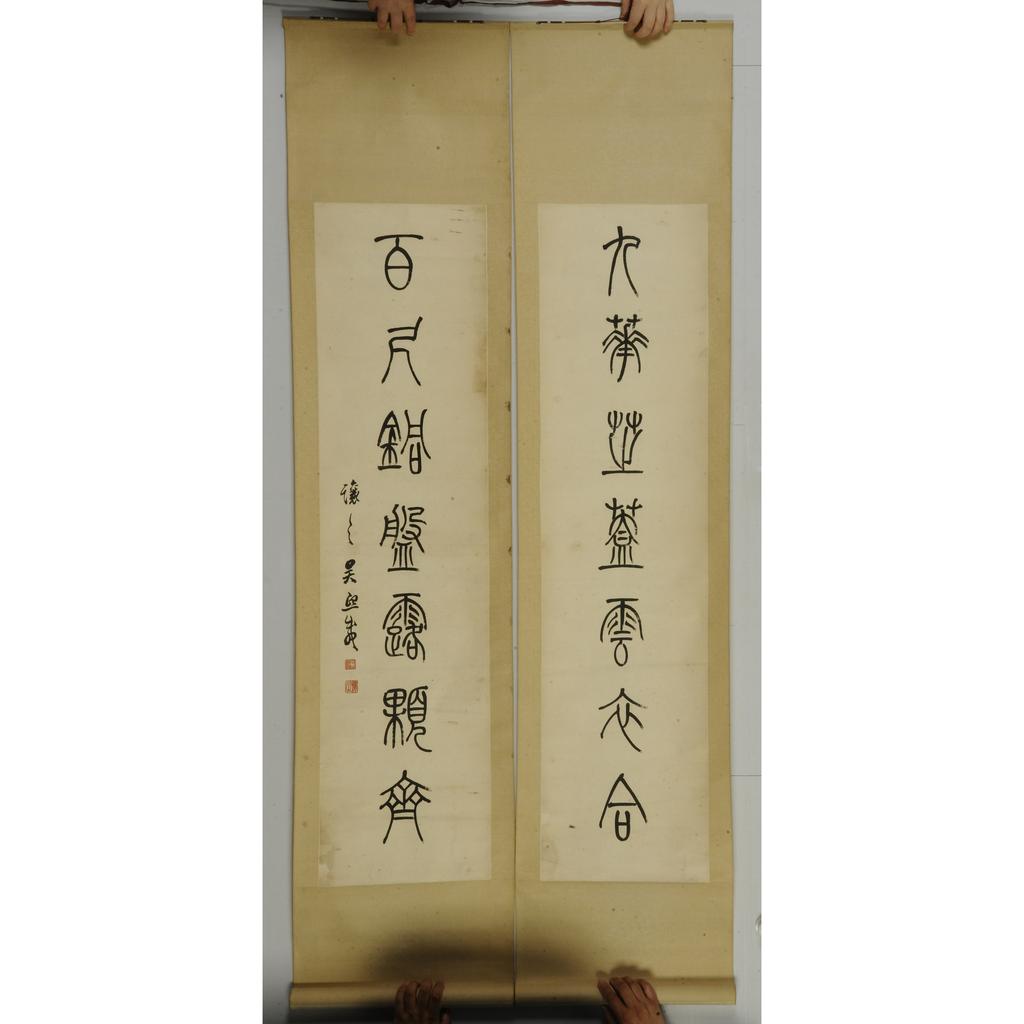 九華芝蓋雲衣合
百尺銅盤露顆齊
讓之吳熙載